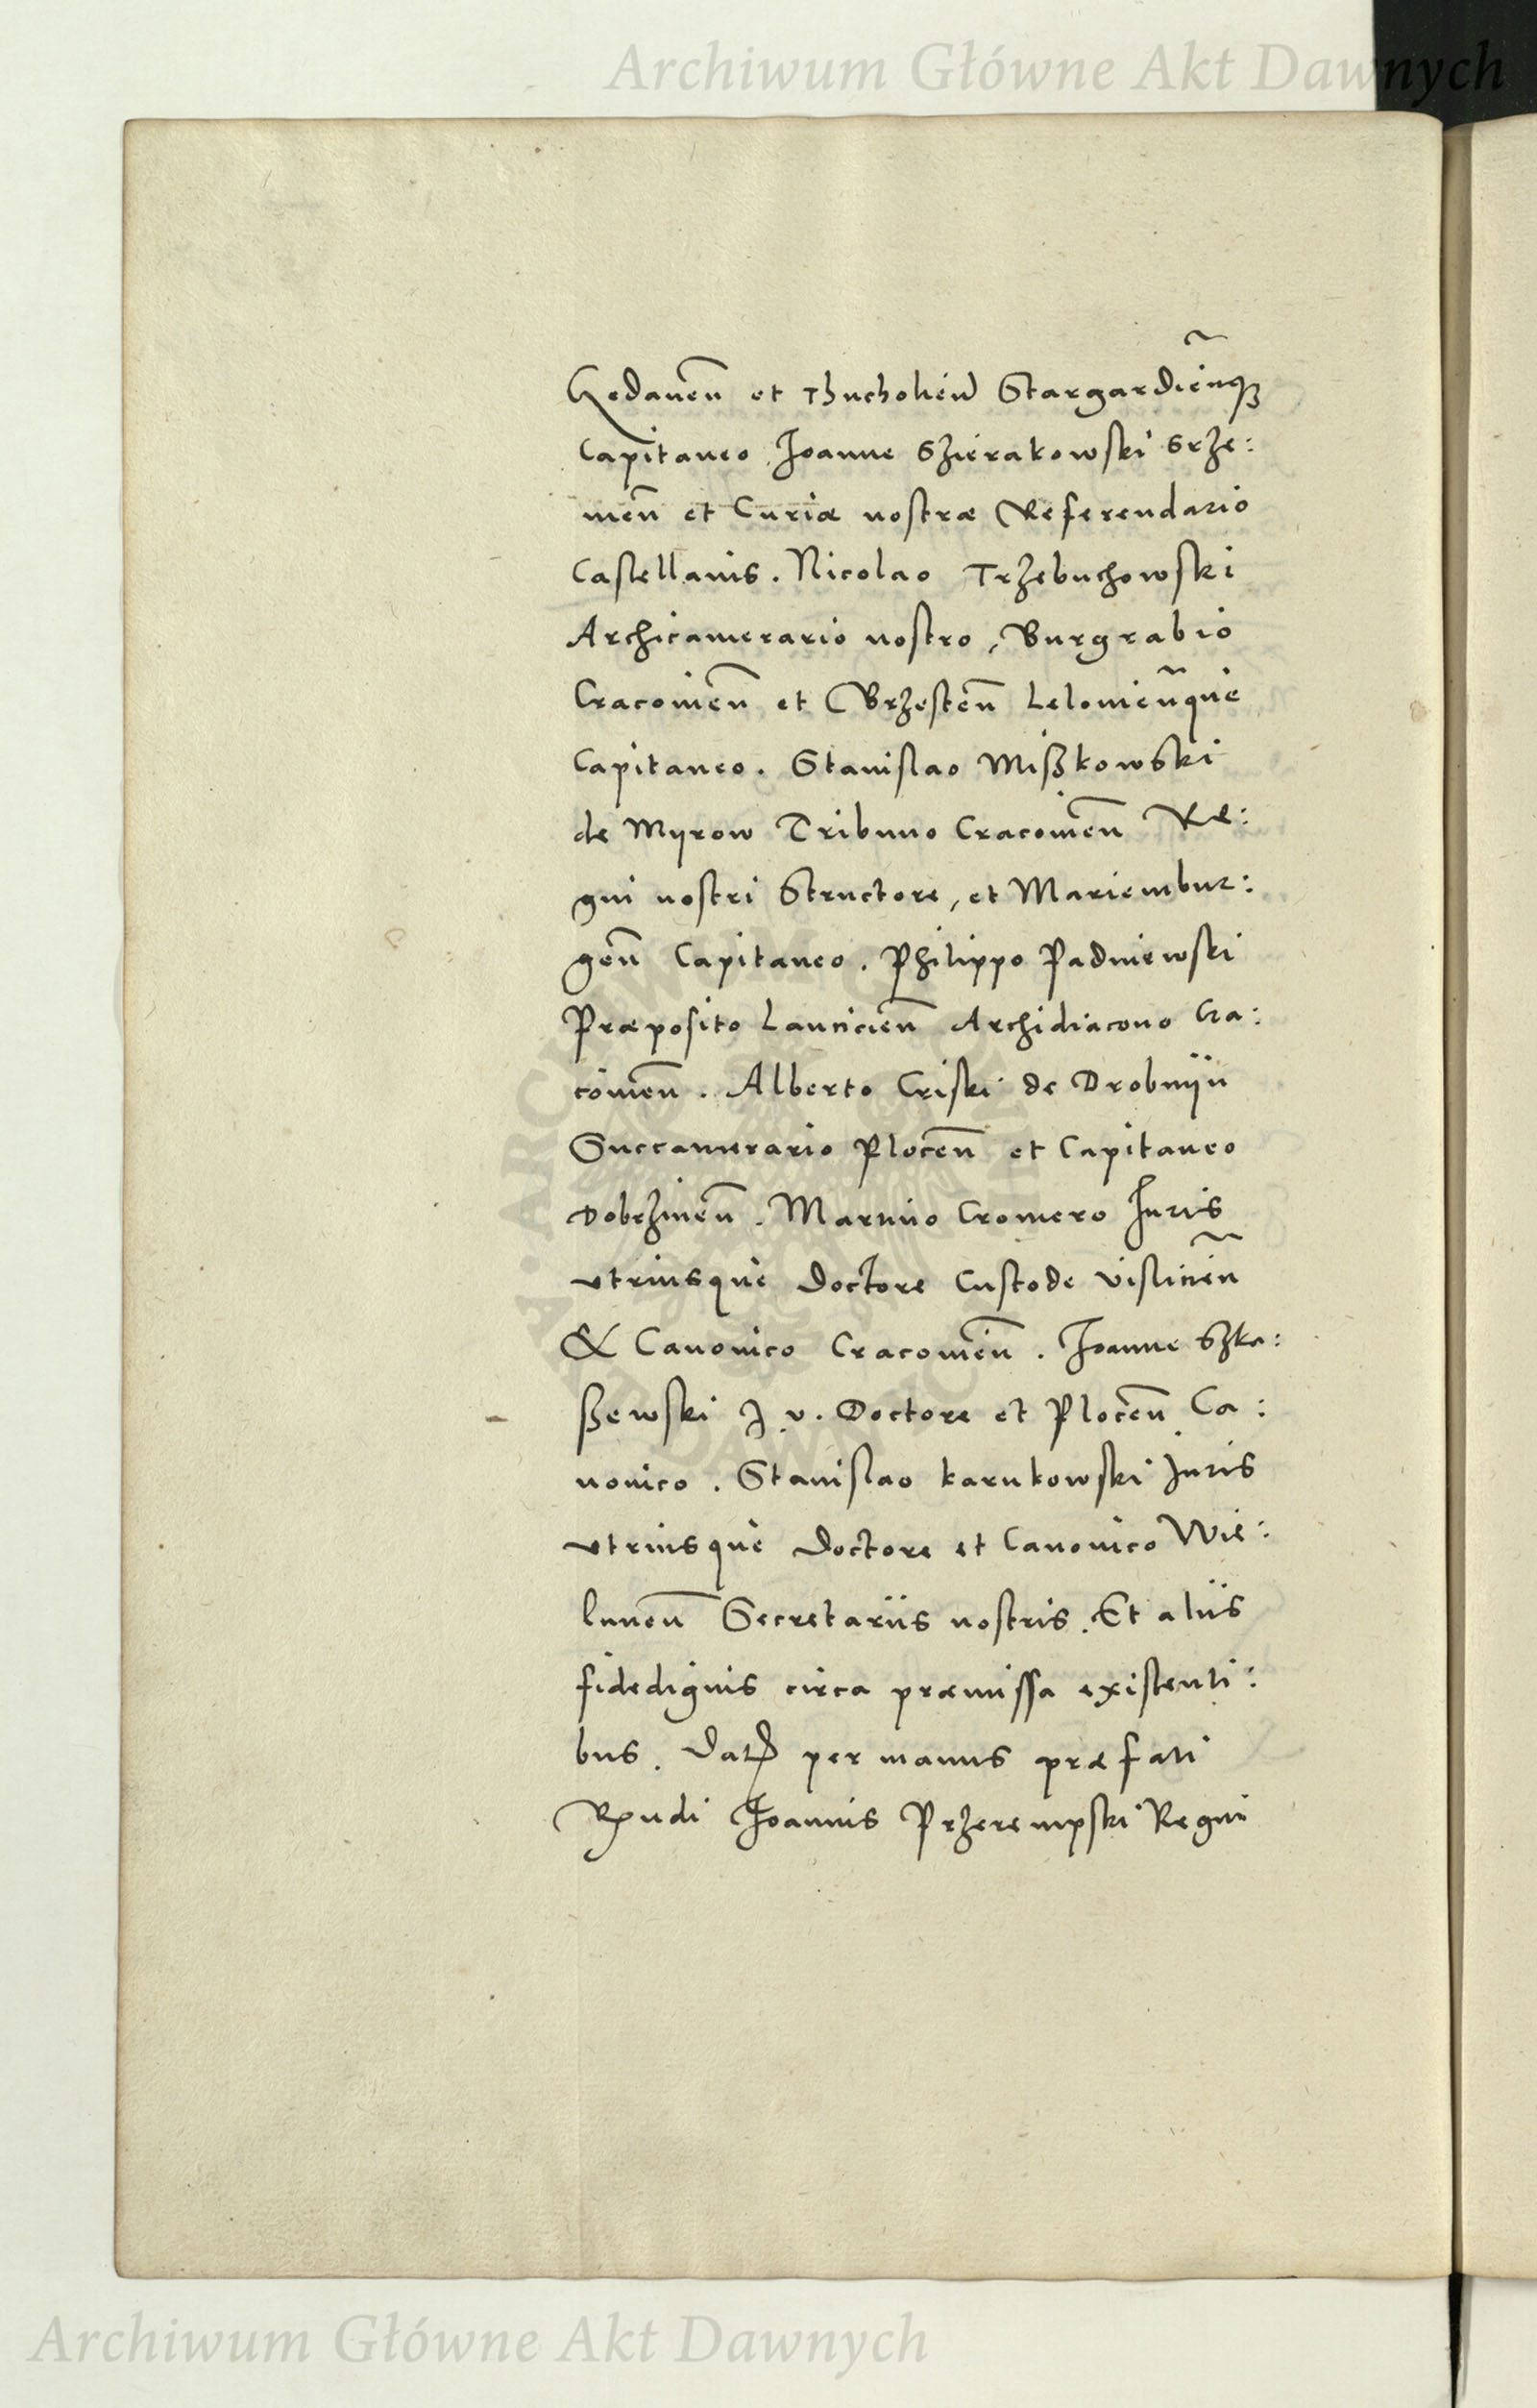 Archiwum Główne Akt Dawnych
Gedanen̄ et Thucholien̄ Stargardien̄qȝ
Capitaneo Joanne Szierakowski Srze:
men̄ et Curiæ nostræ Referendario
Castellanis. Nicolao Trzebuchowski
Archicamerario nostro, Burgrabio
Cracovien̄ et Brzesten̄ Lelovien̄que
Capitaneo. Stanislao Mißkowski
de Myrow Tribuno Cracovien̄ Re:
gni nostri Structore, et Mariembur:
gen̄ Capitaneo. Philippo Padniewski
Præposito Lancicien̄ Archidiacono Cra:
covien̄. Alberto Criski de Drobnijn
Succamerario Plocen̄ et Capitaneo
Dobrzinen̄. Martino Cromero Juris
vtriusque Doctore Custode vislicien̄
& Canonico Cracovien̄. Joanne Szko:
ßewski J. v. Doctore et Plocen̄ Ca:
nonico. Stanislao karnkowski Juris
vtriusque Doctore et Canonico Wie:
lunen̄ Secretariis nostris. Et aliis
fidedignis circa præmissa existenti:
bus. Dat̄ per manus præfati
Rn̄di Joannis Przerempski Regni
Archiwum Główne Akt Dawnych